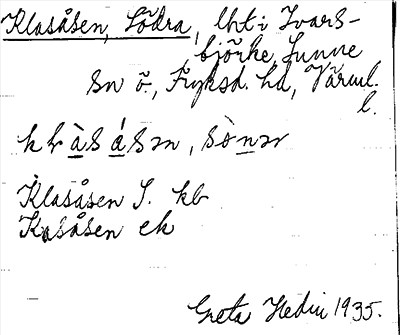 Klasåsen, Södra, lht i Ivars-
björke, Sunne
sn ö., Fryksd. hd, Värml.
l.
klàsåsən, sònər
Klasåsen S. kb
Kasåsen ek
Greta Hedin 1935.